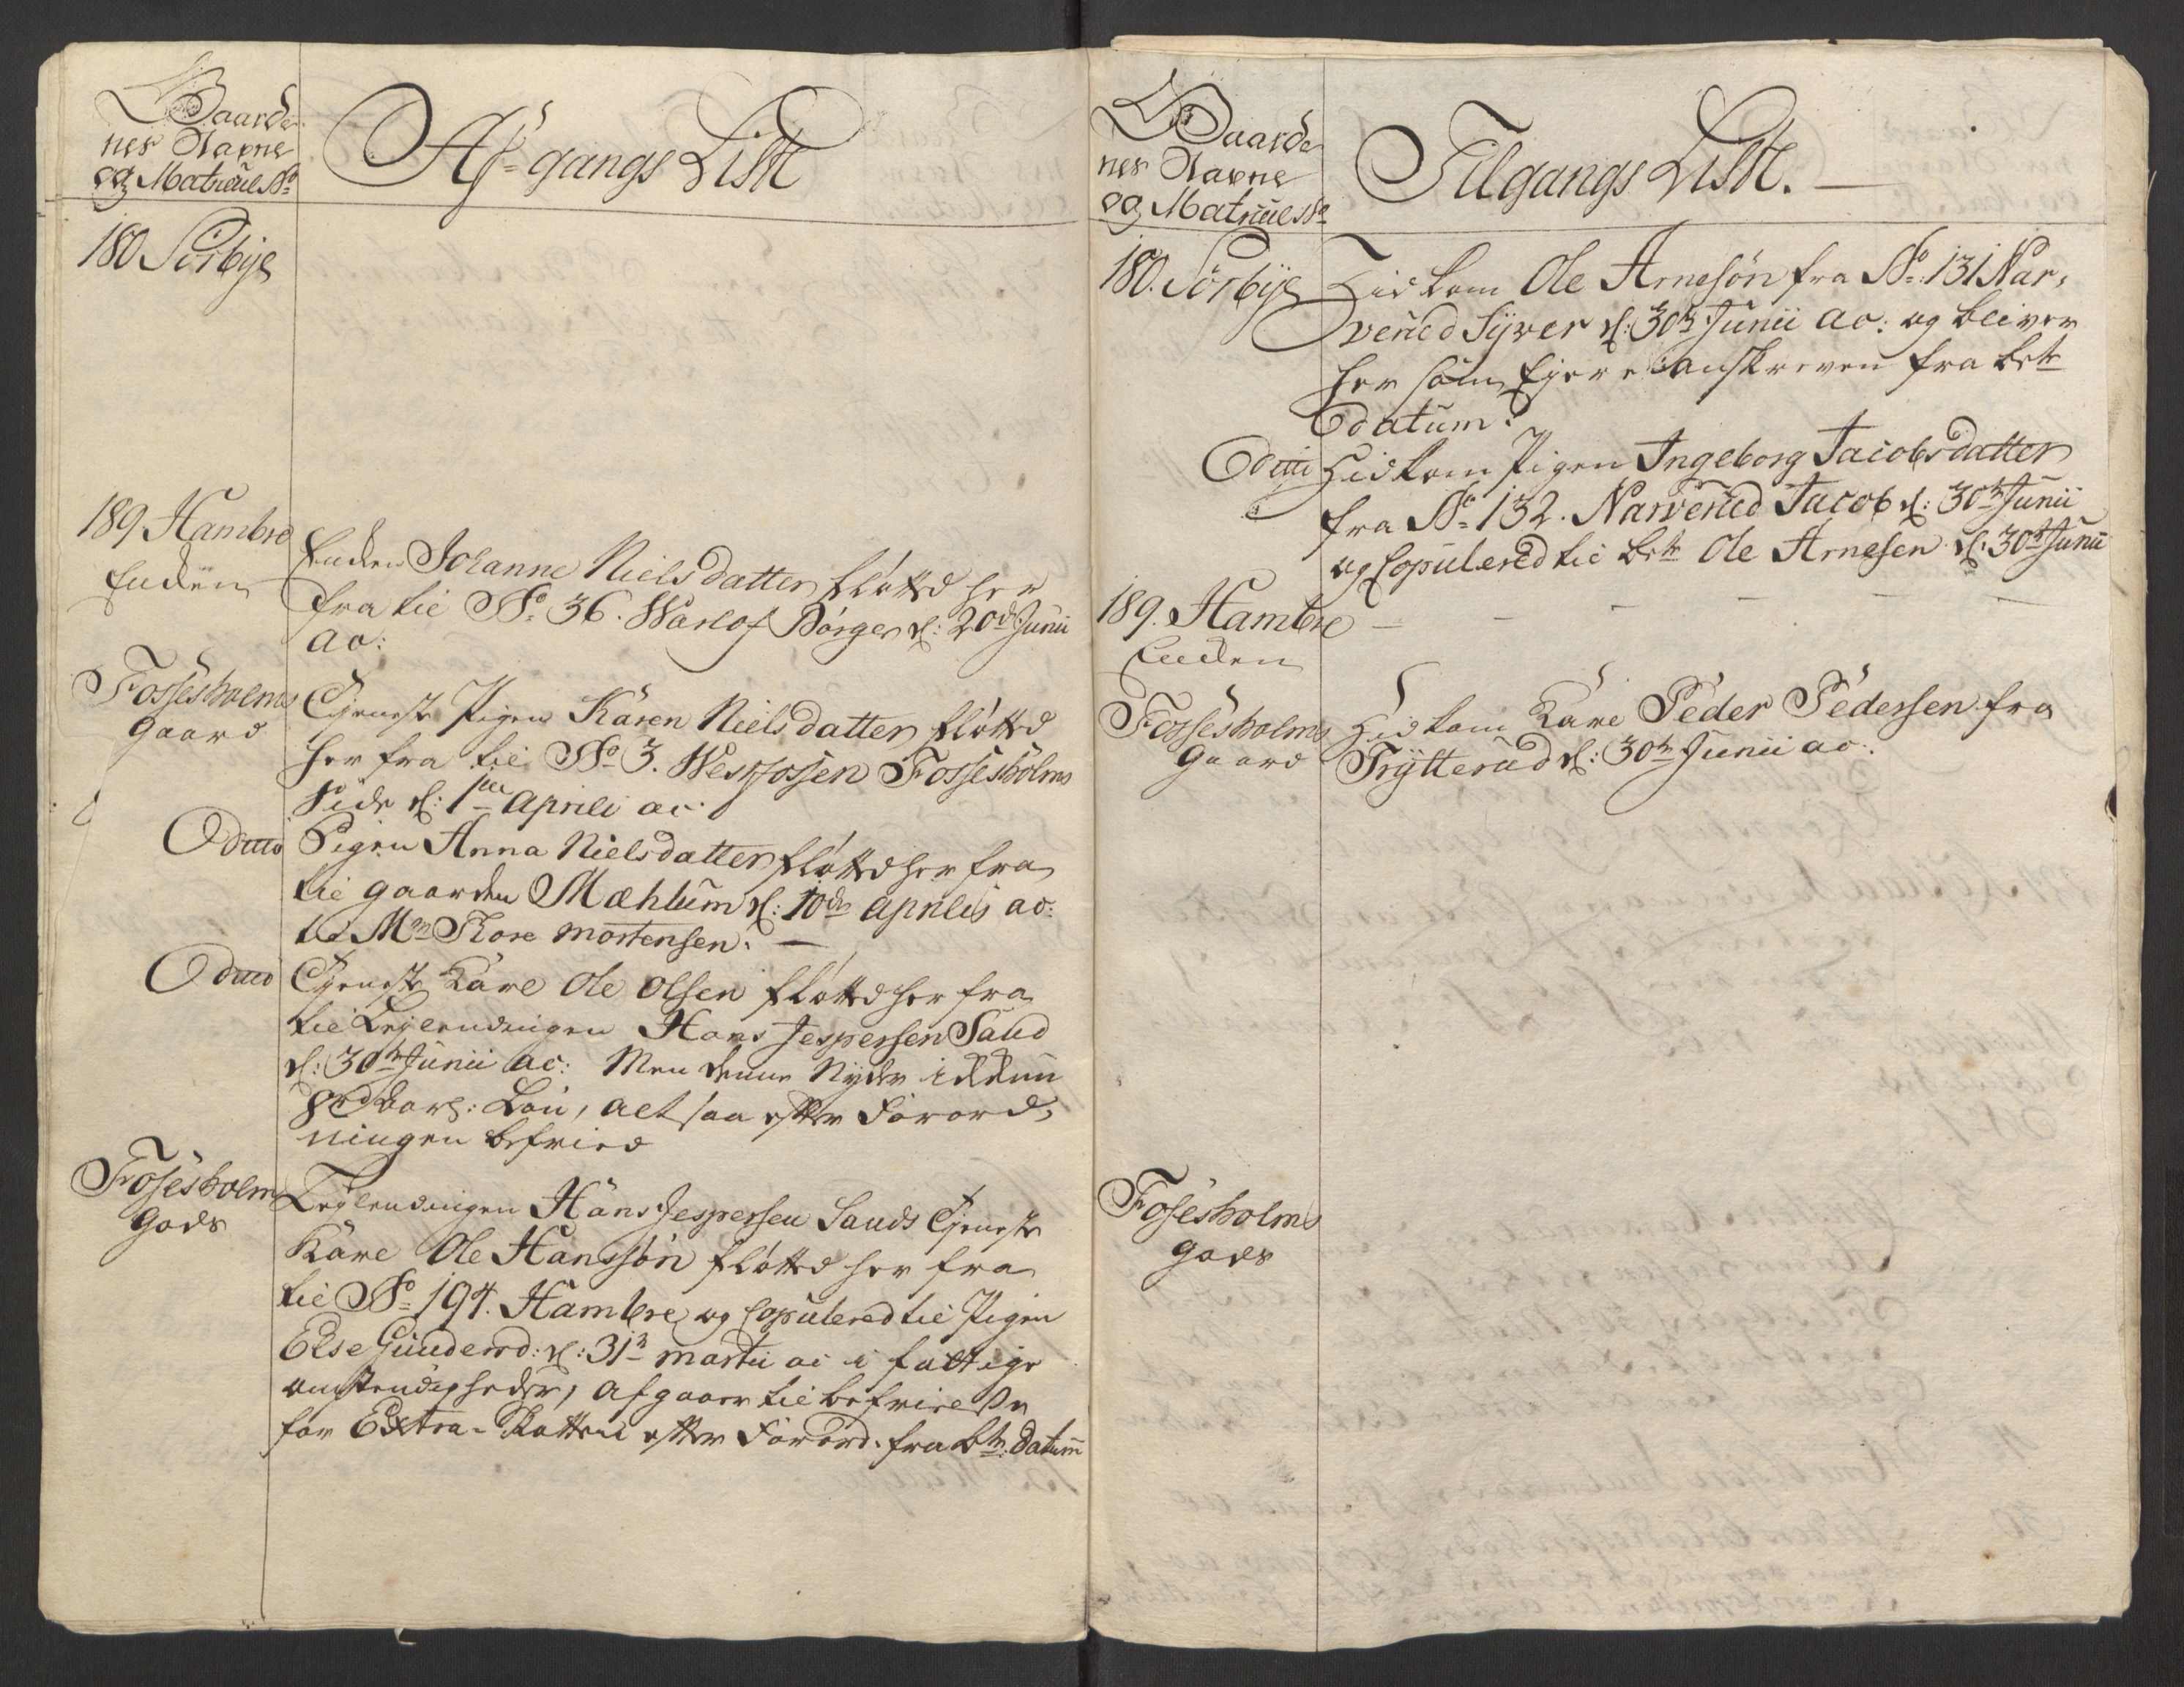 Gaarde
nes Navne
og Matricul No
Af-gangs Liste
180 Sørbye
189 Hambre
Enchen
Enchen Johanne Nielsdatter fløtted her
fra til No 36. Warlof Børge d: 20de Junii
ao:
Fossesholms
Gaard
Tjeneste Pigen Karen Nielsdatter fløtted
her fra til No 3. Westfossen Fossesholms
side d: 1ste Aprili ao
Ditto
Pigen Anna Nielsdatter fløtted her fra
til gaarden Mæhlum d: 10de Aprilis ao:
til Mr Tore Mortensen. —
Ditto
Tjeneste Karl Ole Olsen fløtted her fra
til Leylendingen Hans Jespersen Saud
d: 30te Junii ao: Men denne Nyder ikkun
8rd aarl: Løn, alt saa efter Forord,
ningen befried
Fosesholms
Gods
Leylendingen Hans Jespersen Sauds Tjeneste
Karl Ole Hanssøn fløtted her fra
til No 194. Hambre og Copulered til Pigen
Else Gundersd: d: 31te Martii ao i fattige
omstendigheder, afgaar til befrielse
for Extra-Skatten efter Forord. fra bte: datum
Gaarde
nes Navne
og Matricul No
Tilgangs Liste. —
180. Sørbye
Hid kom Ole Arnesøn fra No: 131 Nar,
verued Syver d: 30te Junii ao: og bliver
her som Ejere anskreven fra bete
datum.
Ditto
Hid kom Pigen Ingeborg Jacobsdatter
fra No 132. Narverued Jacob d: 30te Junii
og Copulered til bete Ole Arnesen d: 30te Junii
189. Hambre — — — — —
Enchen
Fossesholms
Gaard
Hid kom Karl Peder Pedersen fra
Frytterud d: 30te Junii ao:
Fosesholms
Gods